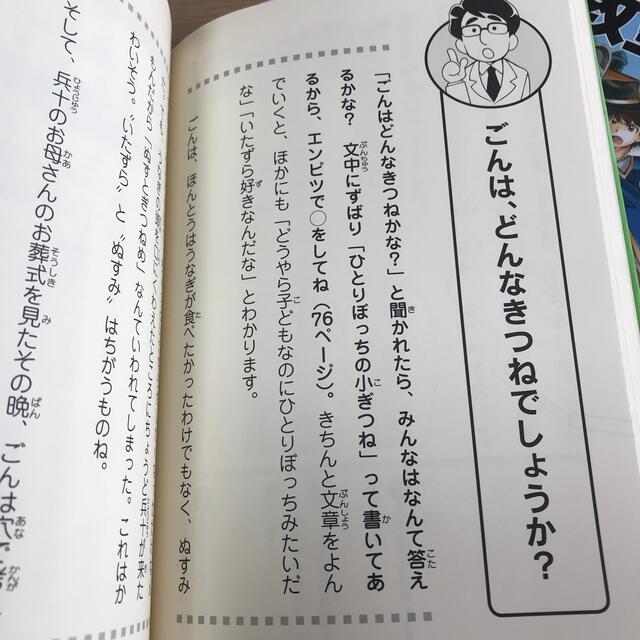 ごんは、どんなきつねでしょうか？
「ごんはどんなきつねかな？」と聞かれたら、みんなはなんて答え
るかな？　文中にずばり「ひとりぼっちの小ぎつね」って書いてあ
るから、エンピツで○をしてね（76ページ）。きちんと文章をよん
でいくと、ほかにも「どうやら子どもなのにひとりぼっちみたいだ
な」「いたずら好きなんだな」とわかります。
ごんは、ほんとうはうなぎが食べたかったわけでもなく、ぬすみ
もんだから「ぬすとぎつねめ」なんていわれてしまった。これはか
わいそう。“いたずら”と“ぬすみ”はちがうものね。
そして、兵十のお母さんのお葬式を見たその晩、ごんは穴で